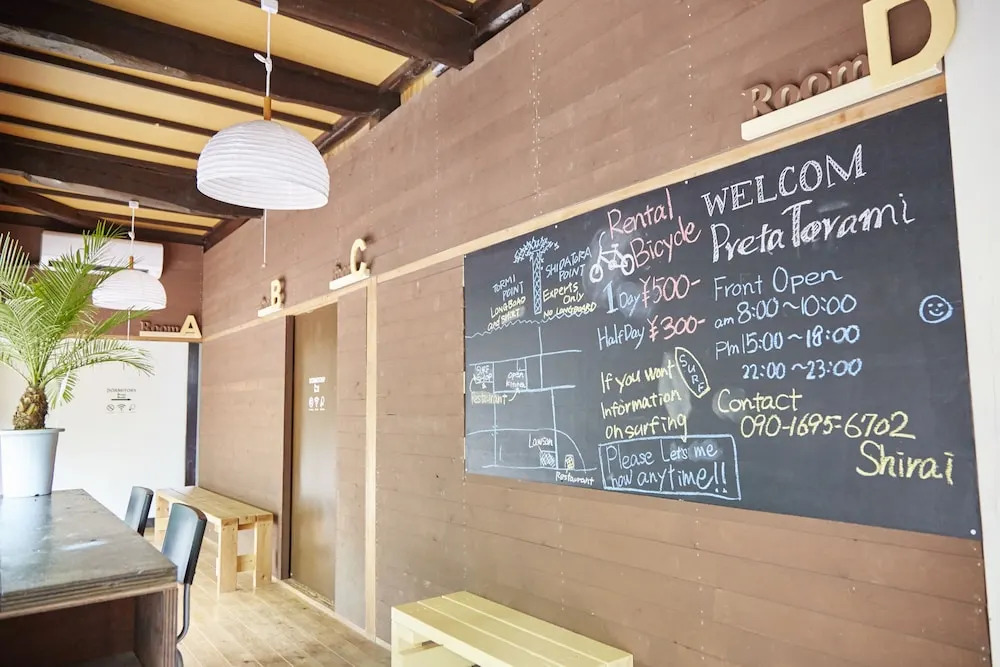 Room D
Room A
B
C
DORMITORY
WELCOM
PretaTorami
Front Open
am 8:00~10:00
Pm 15:00~18:00
22:00~23:00
Contact
090-1695-6702
Shirai
Rental
Bicycle
1Day ¥500-
HalfDay ¥300-
If you want
Information
on surfing
SURF
Please Let's me
now anytime!!
TORMI
POINT
LONGBOAD
and SHORT
SHIDATORA
POINT
Experts
Only
No LONGBOARD
SURF
SHOP
&
Restaurant
open
Lawson
Restaurant